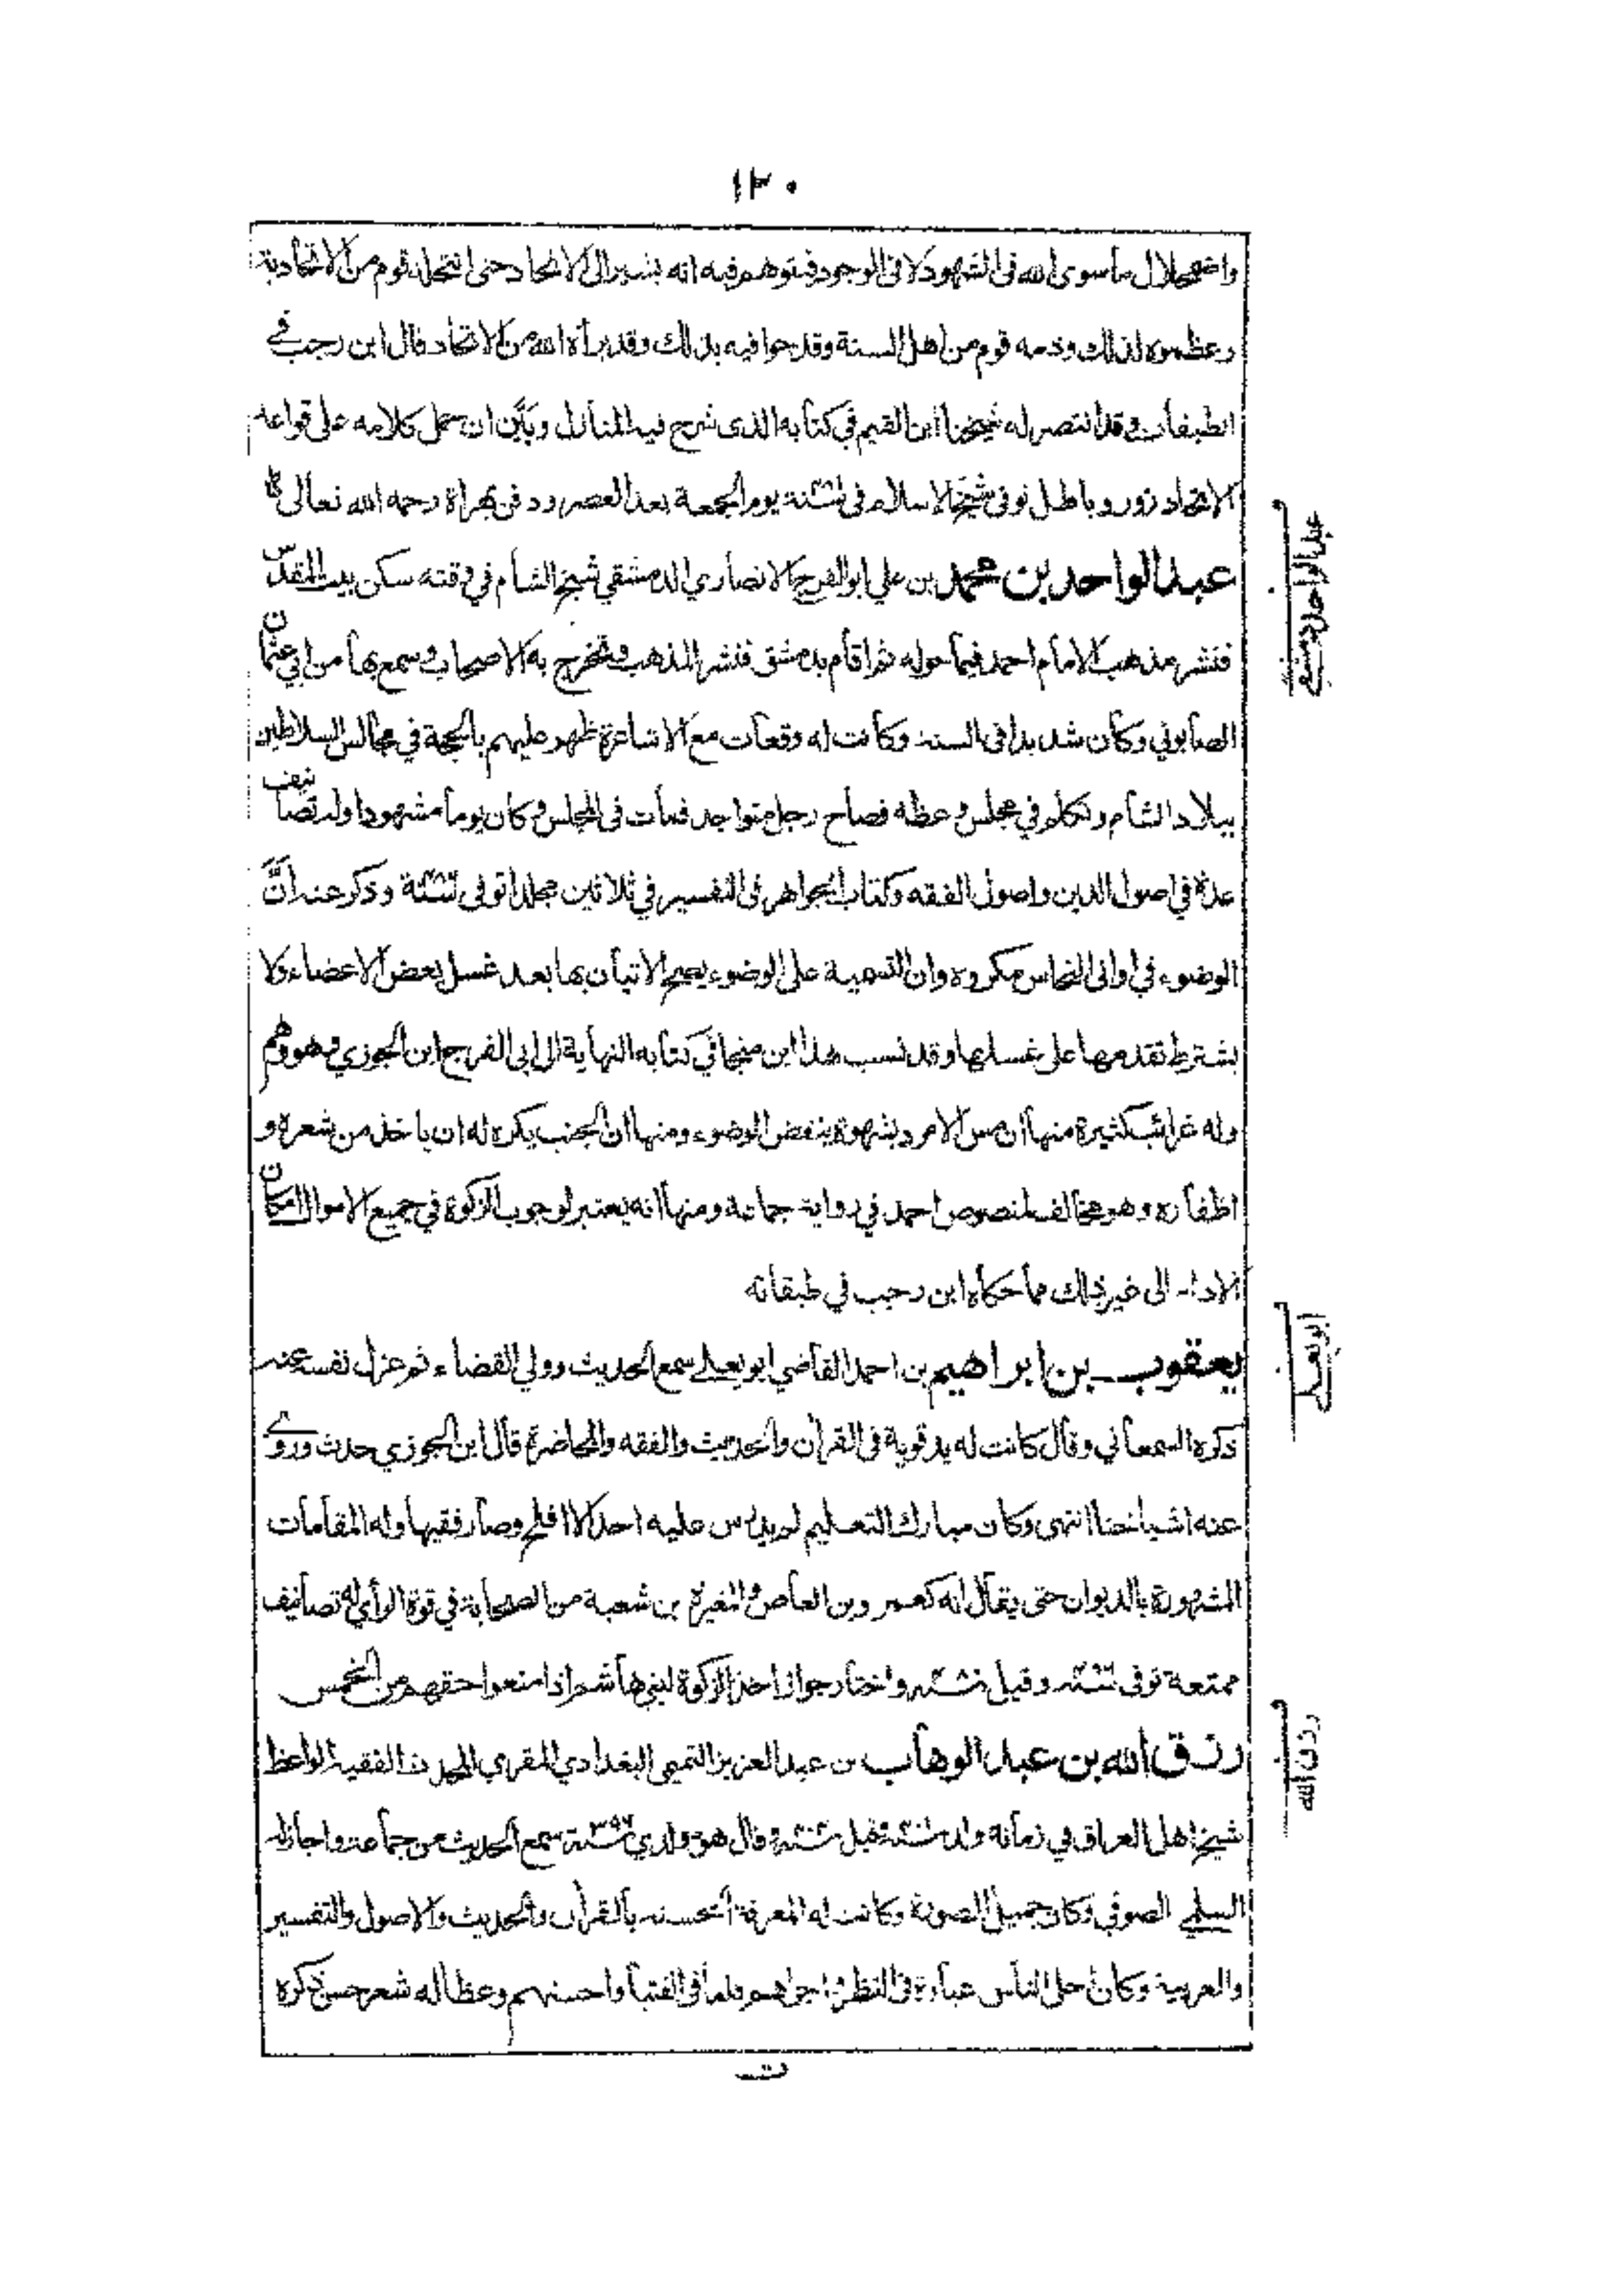 ١٣٠
واضمحلال ما سوى الله فى الشهود لا فى الوجود فيتوهم فيه انه يشير الى الاتحاد حتى انتحله قوم من الاتحادية
وعظموه لذلك وذمه قوم من اهل السنة وقدحوا فيه بذلك وقد برأه الله من الاتحاد قال ابن رجب في
الطبقات وقد انتصر له شيخنا ابن القيم في كتابه الذى شرح فيه المنازل وبيّن ان حمل كلامه على قواعد
الاتحاد زور وباطل توفى شيخ الاسلام فى سنة يوم الجمعة بعد العصر ودفن بهراة رحمه الله تعالى
عبد الواحد بن محمد بن علي ابو الفرج الانصاري الدمشقي شيخ الشام في وقته سكن بيت المقدس
فنشر مذهب الامام احمد فيما حوله ثم اقام بدمشق فنشر المذهب وتخرج به الاصحاب وسمع بها من ابي عثمان
الصابوني وكان شديدا فى السنة وكانت له وقعات مع الاشاعرة وظهر عليهم بالحجة في مجالس السلاطين
ببلاد الشام وتكلم في مجلس وعظه فصاح رجل متواجد فمات فى المجلس وكان يوما مشهودا وله تصانيف
عدة في اصول الدين واصول الفقه وكتاب الجواهر فى التفسير في ثلاثين مجلدا توفى سنة وذكر عنه انَّ
الوضوء في اوانى النحاس مكروه وان التسمية على الوضوء يصح الاتيان بها بعد غسل بعض الاعضاء ولا
يشترط تقدمها على غسلها وقد نسب هذا ابن منجا في كتابه النهاية الى ابى الفرج ابن الجوزي وهو وهم
وله غرائب كثيرة منها ان مس الامرد بشهوة ينقض الوضوء ومنها ان الجنب يكره له ان ياخذ من شعره و
اظفاره وهو مخالف لمنصوص احمد في رواية جماعة ومنها انه يعتبر لوجوب الزكوة في جميع الاموال امكان
الاداء الى غير ذلك مما حكاه ابن رجب في طبقاته
يعقوب بن ابراهيم بن احمد القاضي ابو يعلى سمع الحديث وولي القضاء ثم عزل نفسه عنه
ذكره السمعاني وقال كانت له يد قوية فى القرآن والحديث والفقه والمحاضرة قال ابن الجوزي حدث وروى
عنه اشياخنا انتهى وكان مبارك التعليم لم يدرس عليه احد الا افلح وصار فقيها وله المقامات
المشهورة بالديوان حتى يقال انه كعمرو بن العاص والمغيرة بن شعبة من الصحابة في قوة الرأي له تصانيف
ممتعة توفى سنة وقيل سنة واختار جواز اخذ الزكوة لبنى هاشم اذا منعوا حقهم من الخمس
رزق الله بن عبد الوهاب بن عبد العزيز التميمى البغدادي المقري المحدث الفقيه الواعظ
شيخ اهل العراق في زمانه ولد سنة وقيل سنة وقال هو مولدي سنة سمع الحديث من جماعة واجازه
السلمي الصوفي وكان جميل الصورة وكانت له المعرفة الحسنة بالقرآن والحديث والاصول والتفسير
والعربية وكان احلى الناس عبارة فى النظر واجراهم قلما فى الفتيا واحسنهم وعظا له شعر حسن ذكره
عبد الواحد دمشقي
ابو يعلى
رزق الله